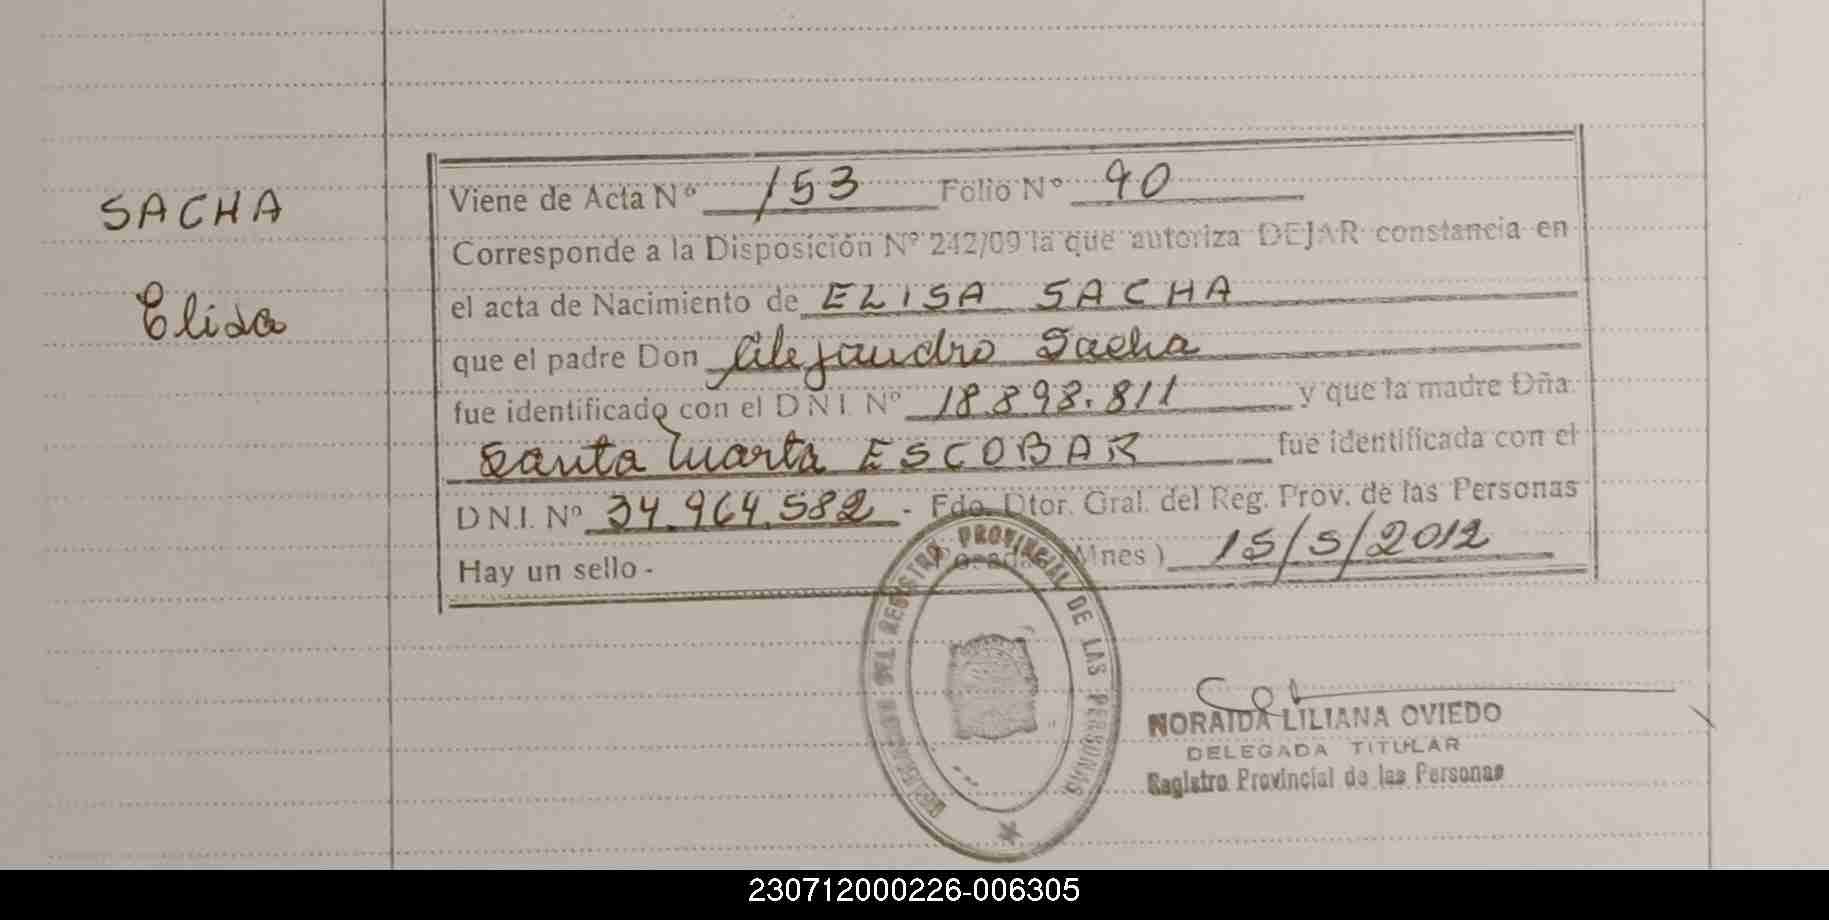 SACHA
Elida
Viene de Acta Nº 153 Folio Nº 90
Corresponde a la Disposición Nº 242/09 la que autoriza DEJAR constancia en
el acta de Nacimiento de ELISA SACHA
que el padre Don Alejandro Sacha
fue identificado con el D N I. Nº 18898.811 y que la madre Dña.
Santa Marta ESCOBAR fue identificada con el
D N.I. Nº 34.964.582 - Fdo. Dtor. Gral. del Reg. Prov. de las Personas
Hay un sello - Mnes ) 15/5/2012
REGISTRO PROVINCIAL DE LAS PERSONAS
NORAIDA LILIANA OVIEDO
DELEGADA TITULAR
Registro Provincial de las Personas
230712000226-006305